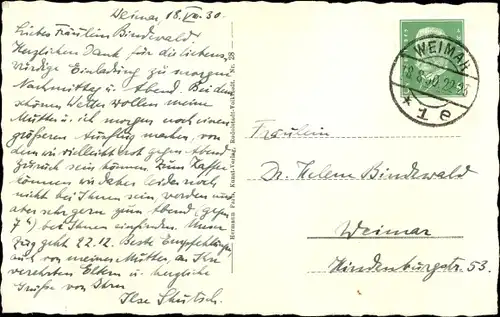 Weimar, 18. VIII. 30.
Liebes Fräulein Bindewald!
Herzlichen Dank für die liebens-
würdige Einladung zu morgen
Nachmittag u. Abend. Bei dem
schönen Wetter wollen meine
Mutter u. ich morgen noch einen
größeren Ausflug machen, von
dem wir vielleicht erst gegen Abend
zurück sein können. Zum Kaffee
können wir daher leider noch
nicht bei Ihnen sein, werden uns
aber sehr gern zum Abend (gegen
7 h) bei Ihnen einfinden. Unser
Zug geht 22.12. Beste Empfehlungen,
auch von meiner Mutter, an Ihre
verehrten Eltern u. herzliche
Grüße von Ihrer
Ilse
Hermann Paris, Kunst-Verlag, Rudolstadt-Volkstedt. Nr. 28
WEIMAR
18.8.30
* 1 e
Fräulein
Dr. Helene Bindewald
Weimar
Hindenburgstr. 53.